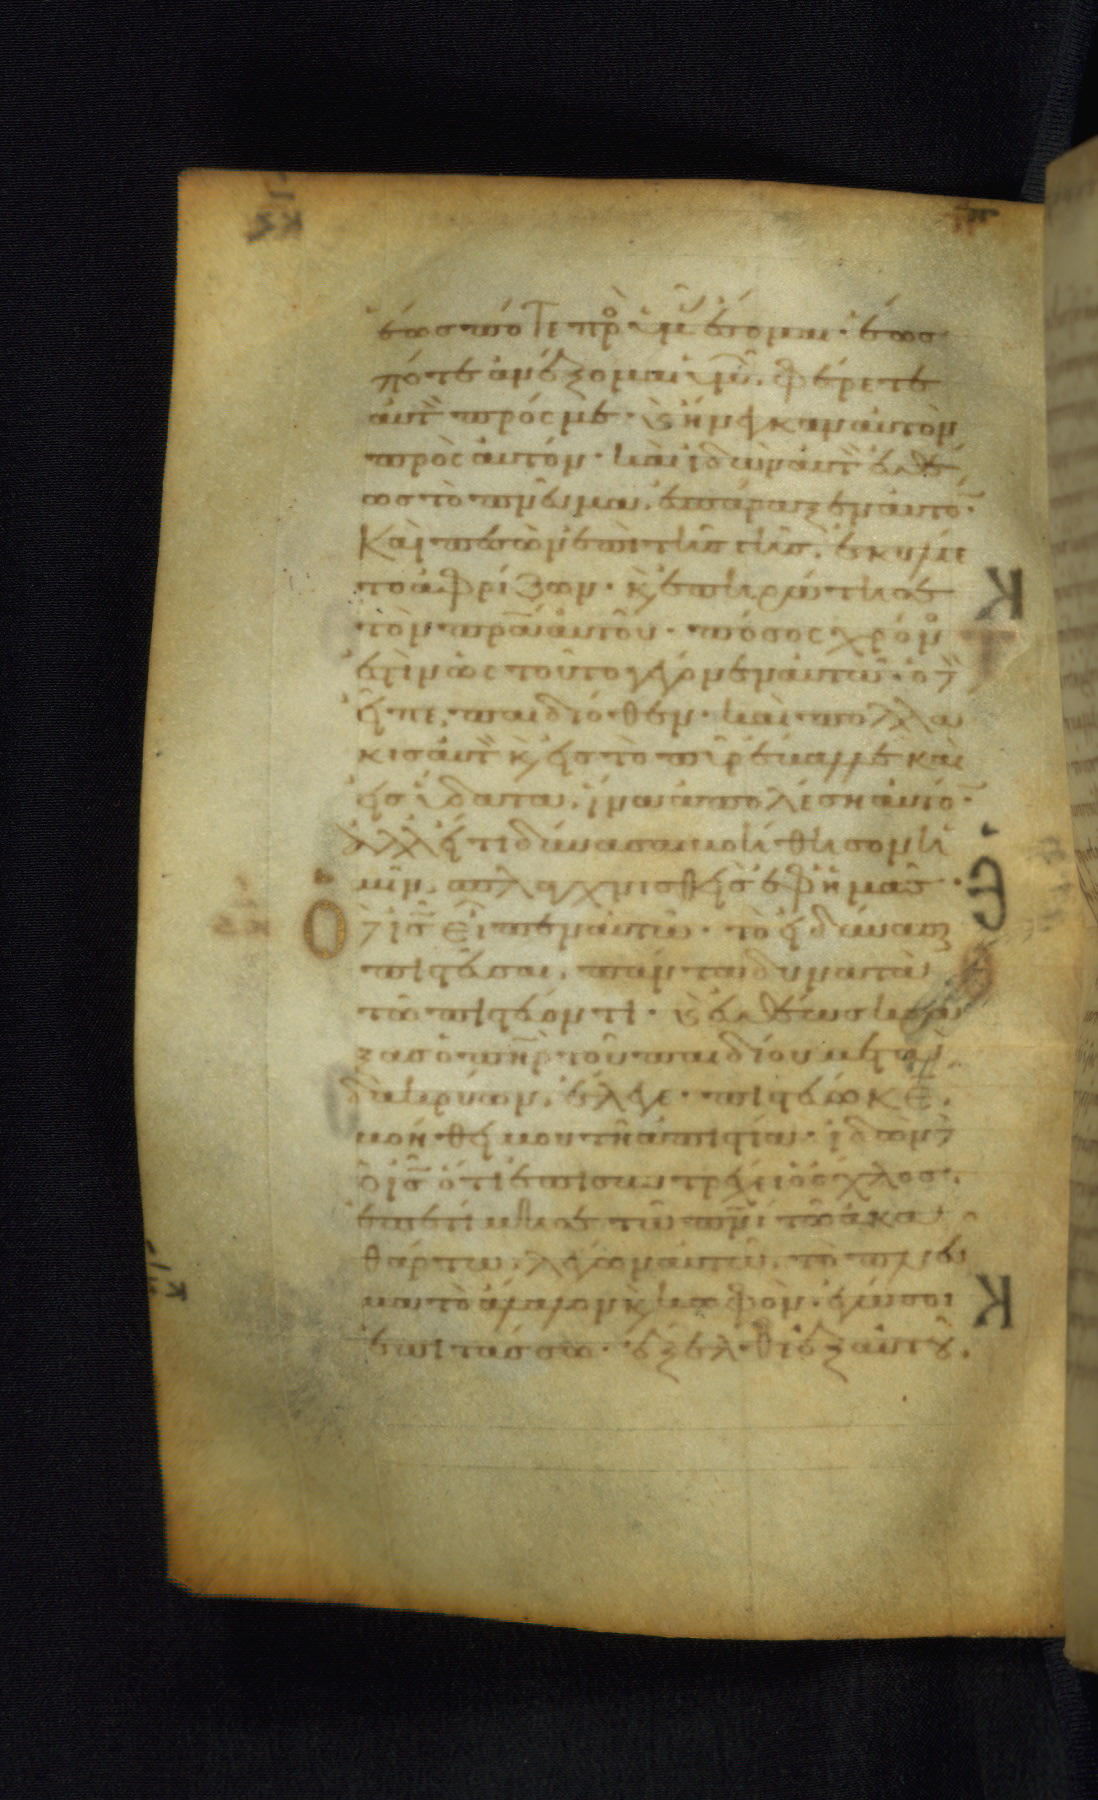 ἕως πότε πρὸ ὑμ ἔσομαι· ἕως
πότε ἀνέξομαι ὑμ. φέρετε
αὐτ πρός με· κ ἤνεγκαν αὐτὸν
πρὸς αὐτόν· καὶ ἰδὼν αὐτ εὐθέ
ως τὸ πνεῦμα. ἐσπάραξεν αὐτό·
Καὶ πεσὼν ἐπὶ τῆς γῆς. ἐκυλίε
το ἀφρίζων· κ ἐπηρώτησε
τὸν πρα αὐτοῦ· πόσος χρόν
ἐστὶν ὡς τοῦτο γέγονεν αὐτῶ· ὁ δ
εἶπε. παιδιόθεν· καὶ πολλά
κις αὐτ κ εἰς τὸ πῦρ ἔβαλλε καὶ
εἰς ὕδατα. ἵνα ἀπολέση αὐτό·
ἀλλ εἴ τι δύνασαι βοήθησον ἡ
μῖν. σπλαγχνισθεὶς ἐφ ἡμᾶς·
Ὁ δ ις εἶπεν αὐτῶ· τὸ εἰ δύνασαι
πιστεῦσαι. πάντα δυνατὰ
τῶ πιστεύοντι· κ εὐθέως κρά
ξας ὁ πηρ τοῦ παιδίου μετὰ
δακρύων. ἔλεγε· πιστεύω κε.
βοήθει μου τῆ ἀπιστία· ἰδὼν δ
ὁ ις ὅτι ἐπισυντρέχει ὁ ὄχλος.
ἐπετίμησε τῶ πνι τῶ ἀκα
θάρτω. λέγων αὐτῶ. τὸ πνεῦ
μα τὸ ἄλαλον κ κωφὸν· ἐγώ σοι
ἐπιτάσσω· ἔξελθε ἐξ αὐτοῦ.